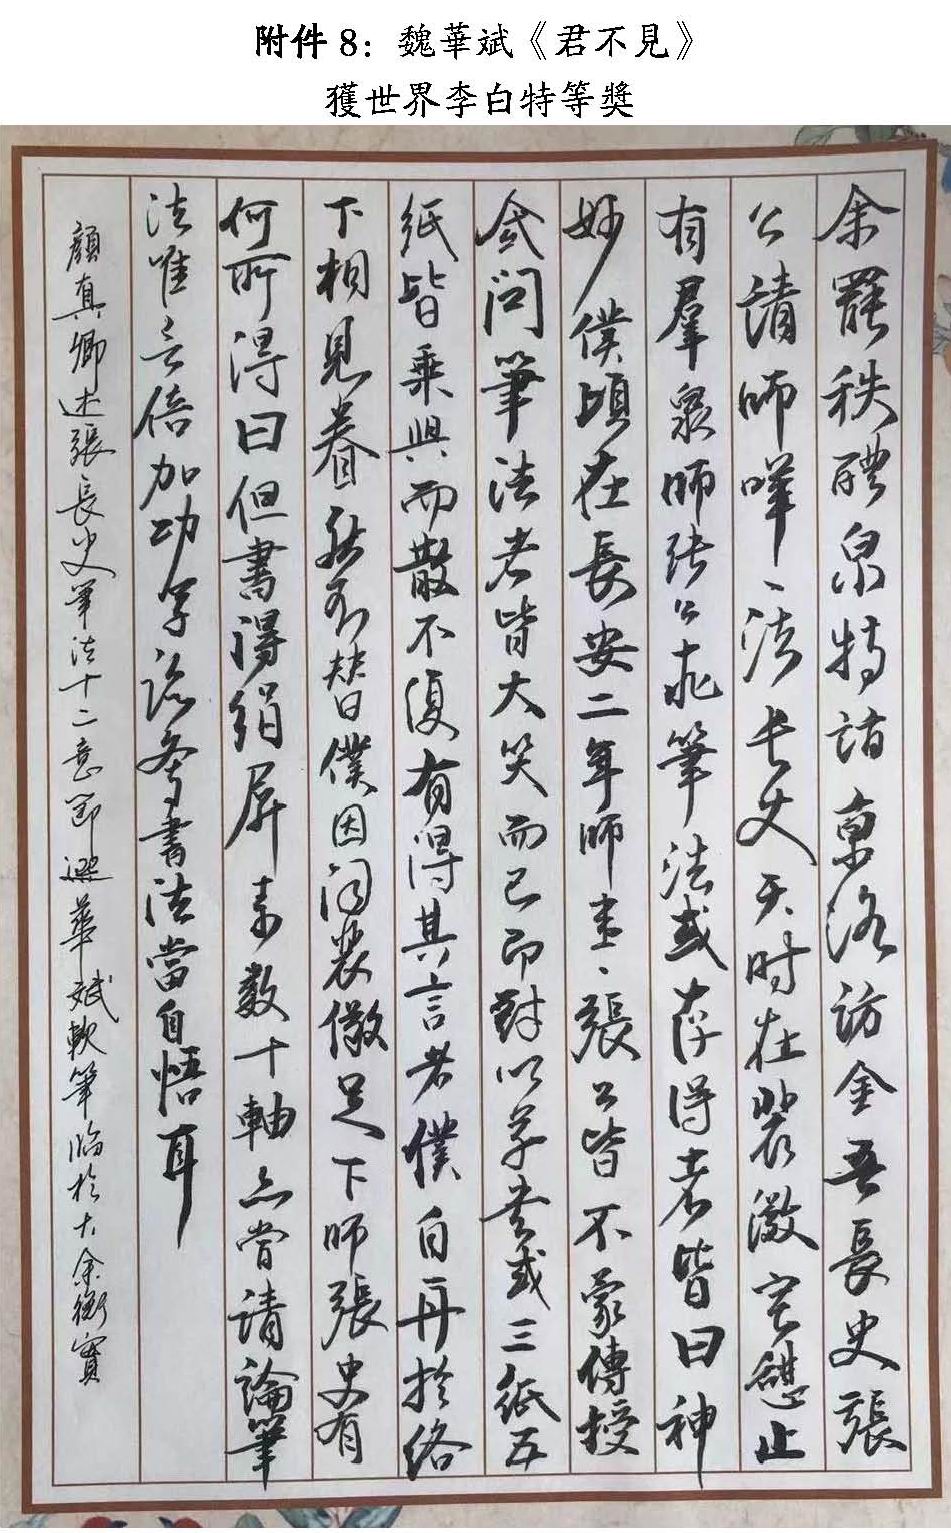 附件 8：魏華斌《君不見》
獲世界李白特等獎
余罷秩醴泉特詣京洛訪金吾長史張
公請師嘩、法長史于时在裴儆宅憩止
有羣眾師張公求筆法或存得者皆曰神
妙僕頃在長安二年師事、張公皆不蒙傳授
人或問筆法者皆大笑而已即對以草書或三紙五
紙皆乘興而散不復有得其言者僕自再於洛
下相見眷然不替僕因問裴儆足下師張史有
何所得曰但書得絹屏素數十軸亦嘗請論筆
法唯言倍加功學臨寫書法當自悟耳
顏真卿述張長史筆法十二意節選華斌軟筆臨於大余衙寶